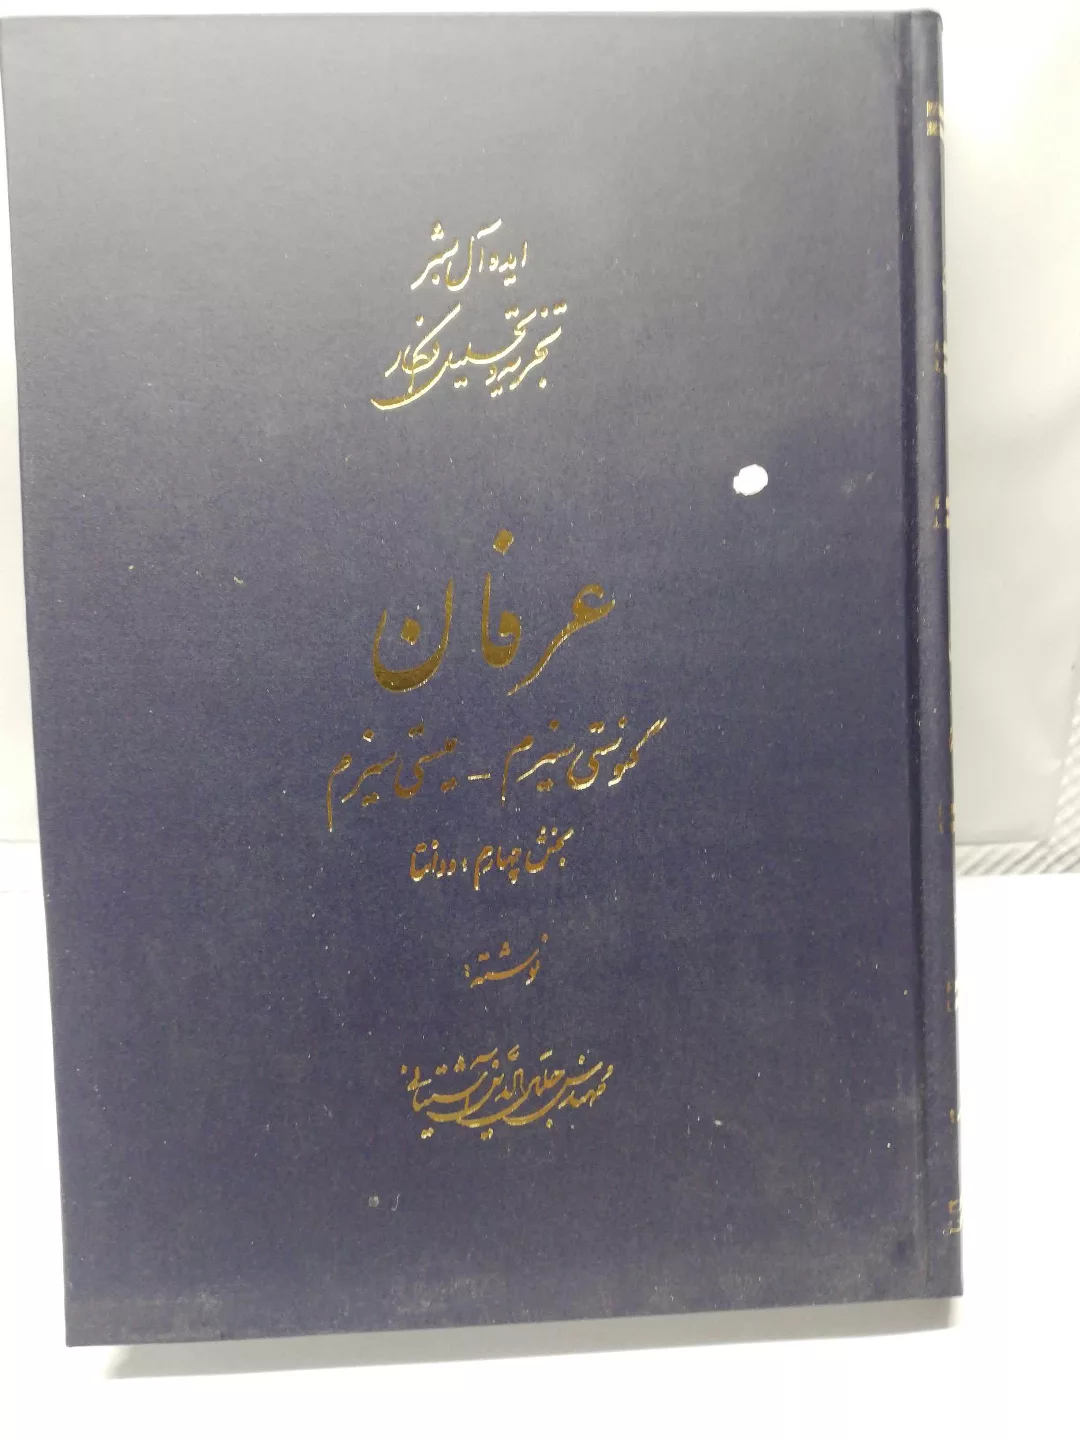 ایده آل بشر
تجزیه و تحلیل افکار
عرفان
گنوستی سیزم - میستی سیزم
بخش چهارم : ودانتا
نوشته :
مهندس جلال الدین آشتیانی